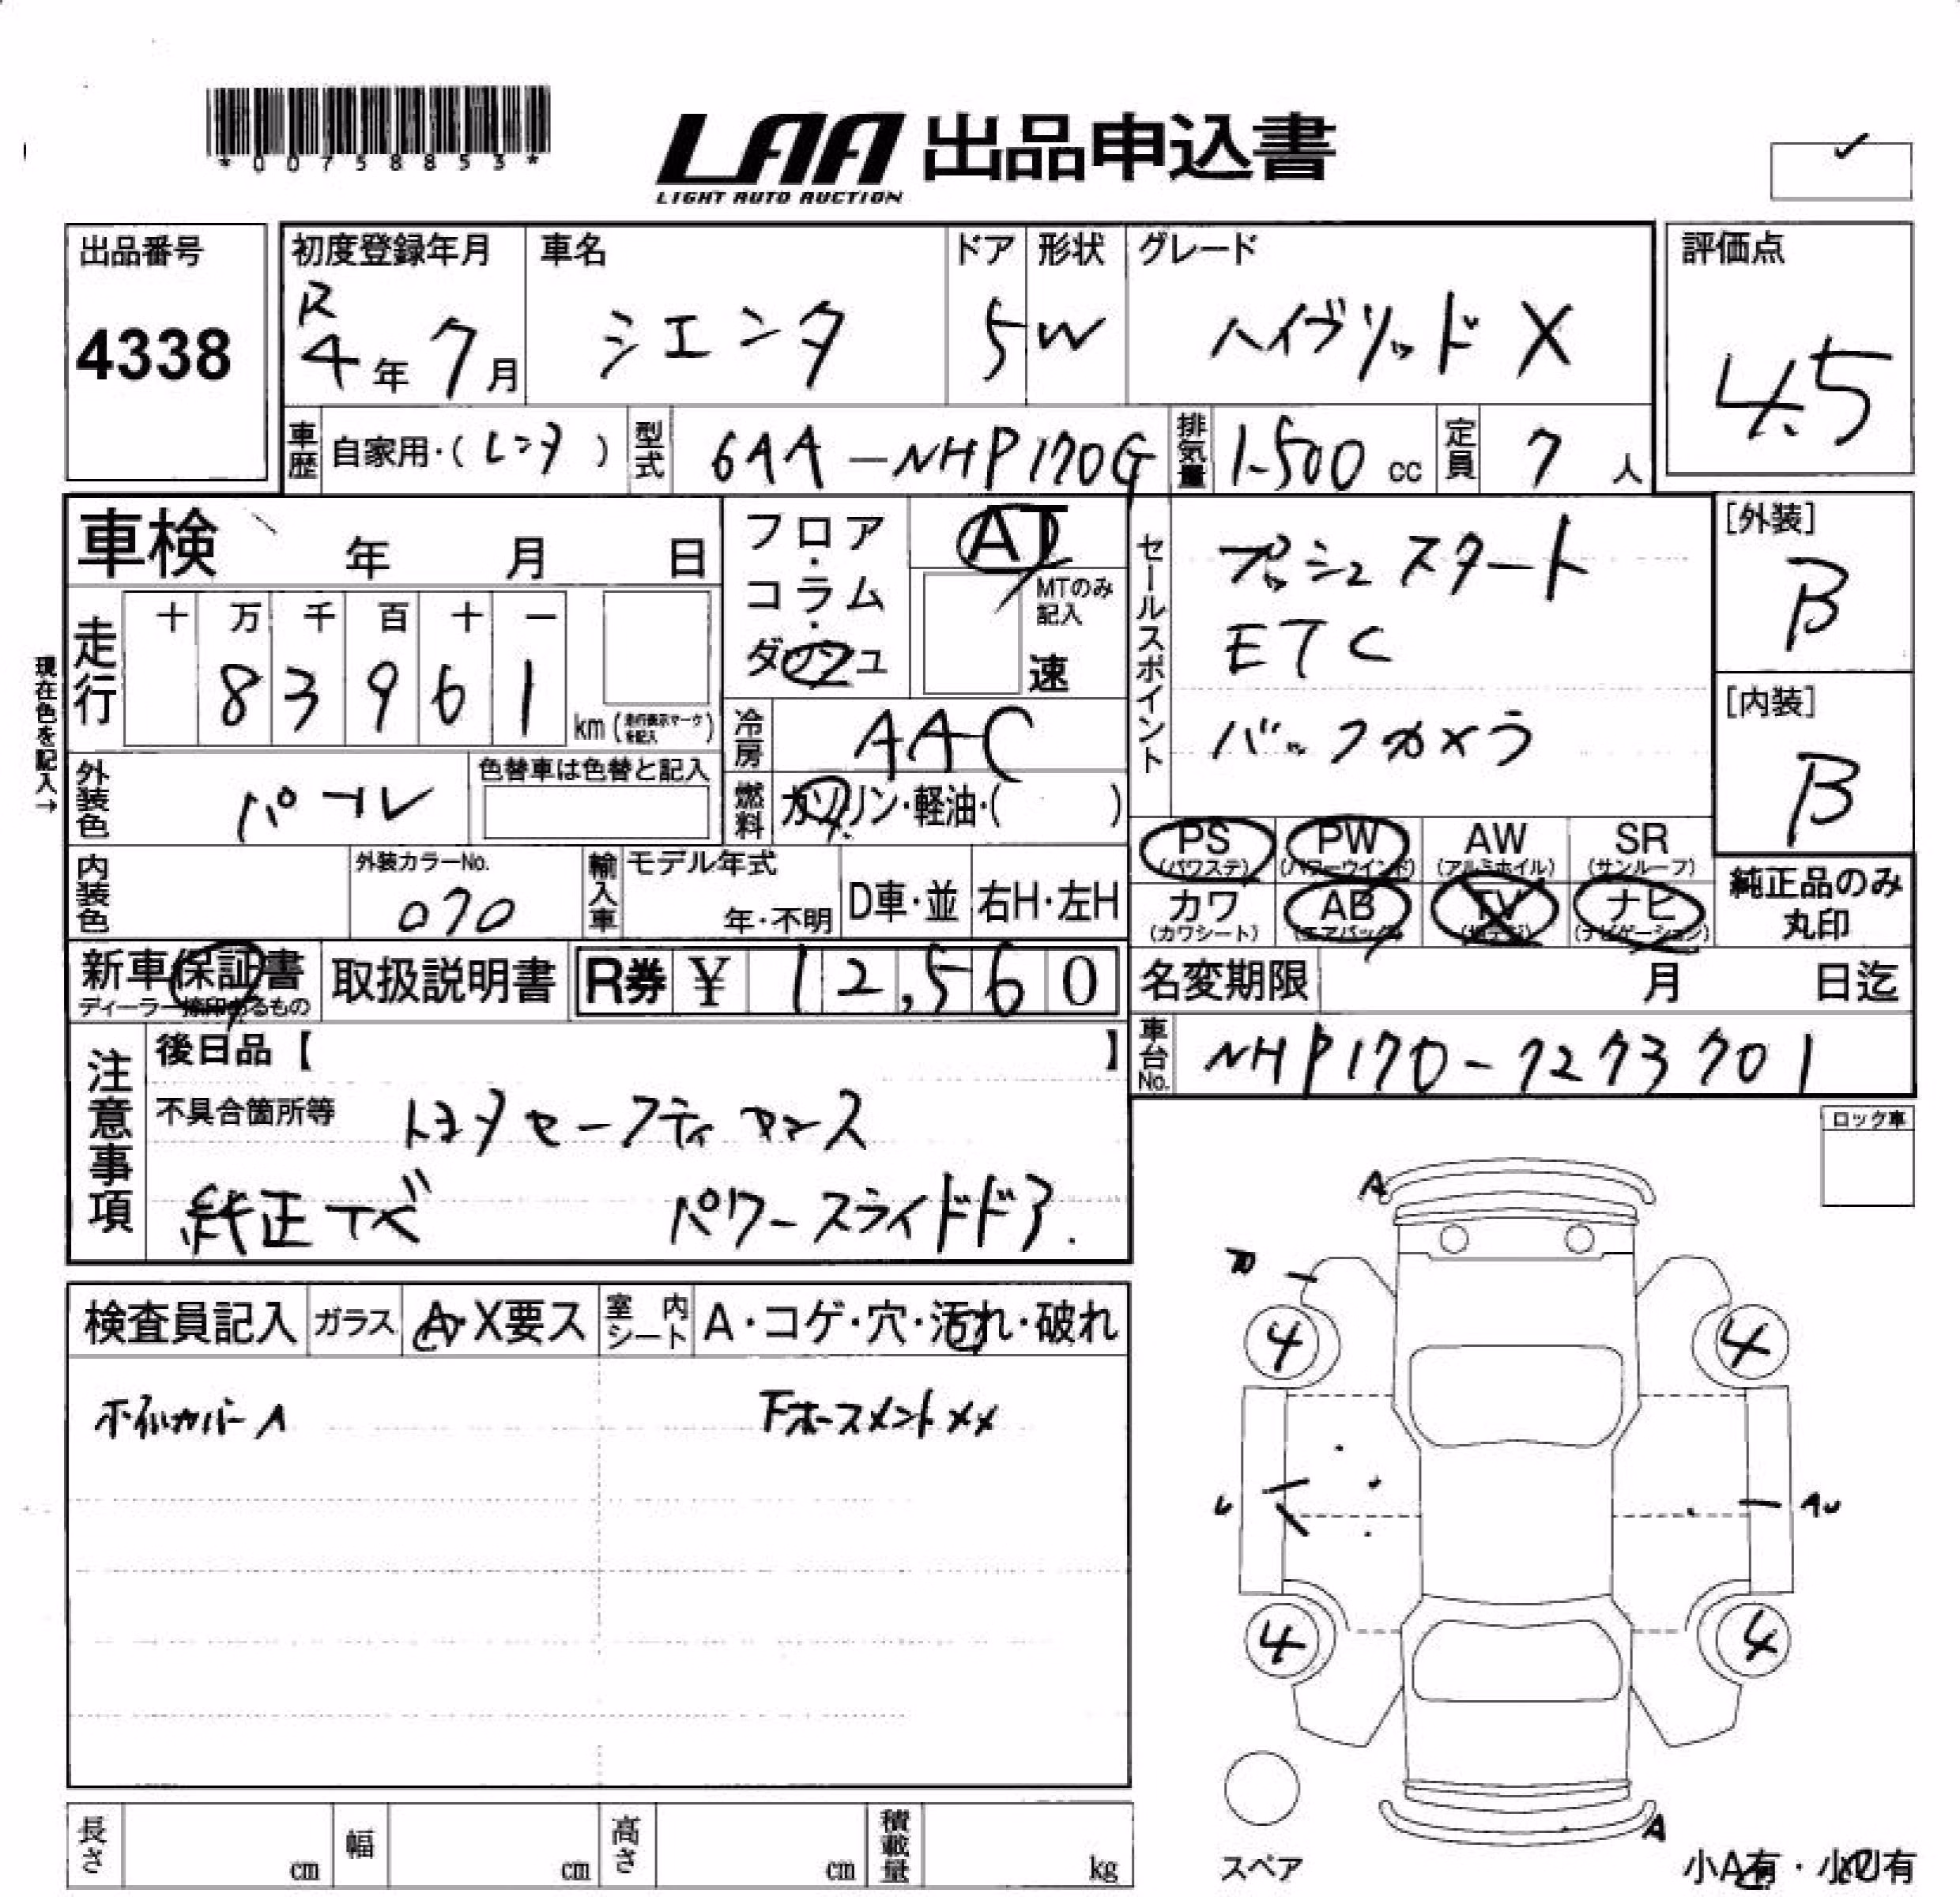 *00758853*
LAA 出品申込書
LIGHT AUTO AUCTION
出品番号
4338
初度登録年月 車名 ドア 形状 グレード
R4年 7月 シエンタ 5 W ハイブリッド X
評価点
4.5
車歴 自家用・(レンタ) 型式 6AA-NHP170G 排気量 1500 cc 定員 7 人
車検 年 月 日
フロア・コラム・ダッシュ
AT
MTのみ記入
速
走行 十 万 千 百 十 一
8 3 9 6 1
km (走行表示マークを記入)
現在色を記入→
セールスポイント
プッシュスタート
ETC
バックカメラ
[外装]
B
[内装]
B
冷房 AAC
燃料 ガソリン・軽油・( )
外装色 パール 色替車は色替と記入
内装色 外装カラーNo. 070
輸入車 モデル年式 年・不明 D車・並 右H・左H
PS (パワステ) PW (パワーウインド) AW (アルミホイル) SR (サンルーフ)
カワ (カワシート) AB (エアバック) TV ナビ (ナビゲーション)
純正品のみ丸印
新車保証書 ディーラー捺印あるもの 取扱説明書 R券 ¥ 12,560
名変期限 月 日迄
車台No. NHP170-7273701
注意事項
後日品【 】
不具合箇所等 トヨタセーフティセンス
純正ナビ パワースライドドア.
ロック車
検査員記入 ガラス A・X要ス 室内シート A・コゲ・穴・汚れ・破れ
ホイルカバーA 下ホースメントXX
A
4 4
U AU
4 4
A
スペア
小A有・小U有
長さ cm 幅 cm 高さ cm 積載量 kg